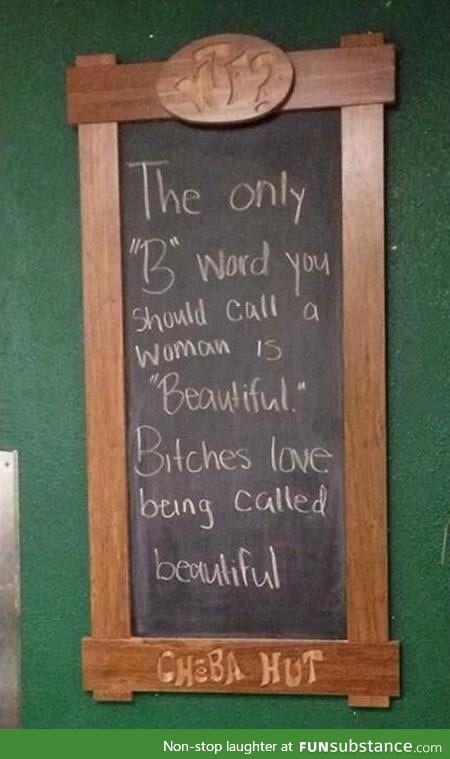 WTF?
The only
"B" word you
should call a
woman is
"Beautiful."
Bitches love
being called
beautiful
CHEBA HUT
Non-stop laughter at FUNsubstance.com